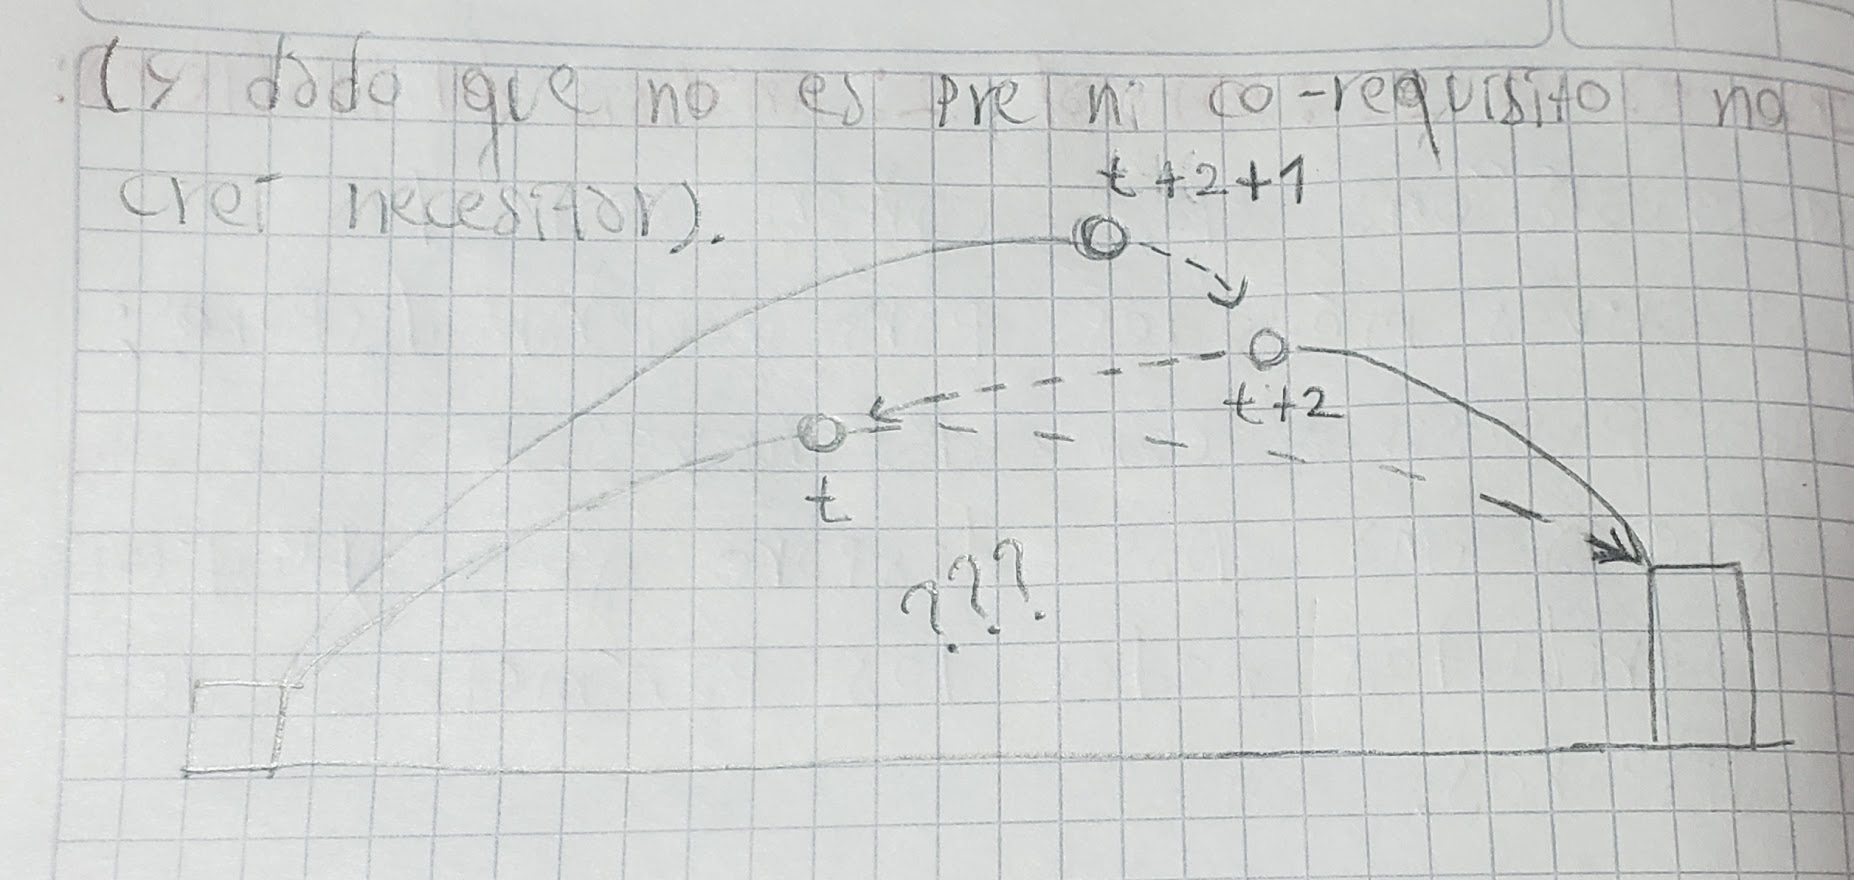 (y dado que no es pre ni co-requisito no
creí necesitar).
t+2+1
t+2
t
???